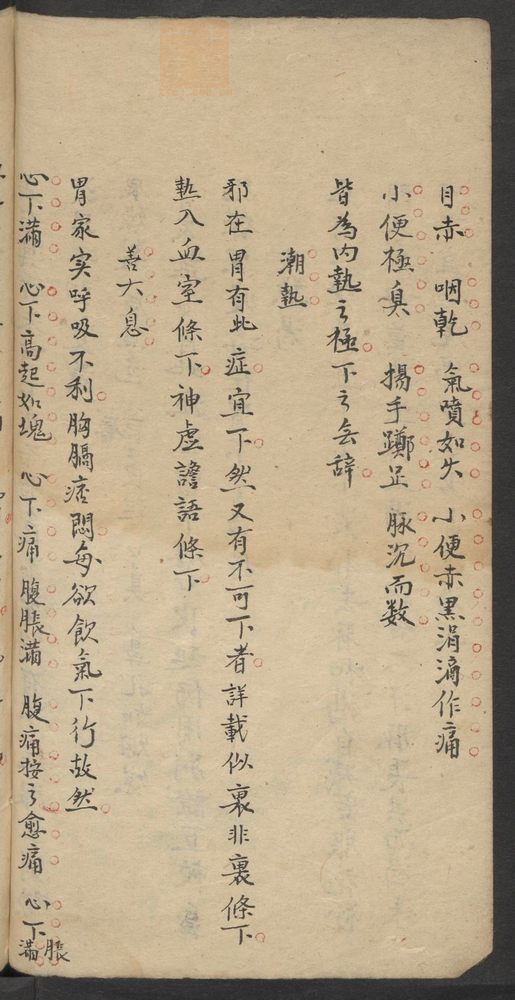 目赤 咽乾 氣噴如火 小便赤黑涓滴作痛
小便極臭 揚手擲足 脉沉而数
皆為内熱之極下之無辞
潮熱
邪在胃有此症宜下然又有不可下者詳載似裏非裏條下
熱入血室條下神虛譫語條下
善太息
胃家实呼吸不利胸膈痞悶每欲飲氣下行故然
心下滿 心下高起如塊 心下痛 腹脹滿 腹痛按之愈痛 心下脹滿